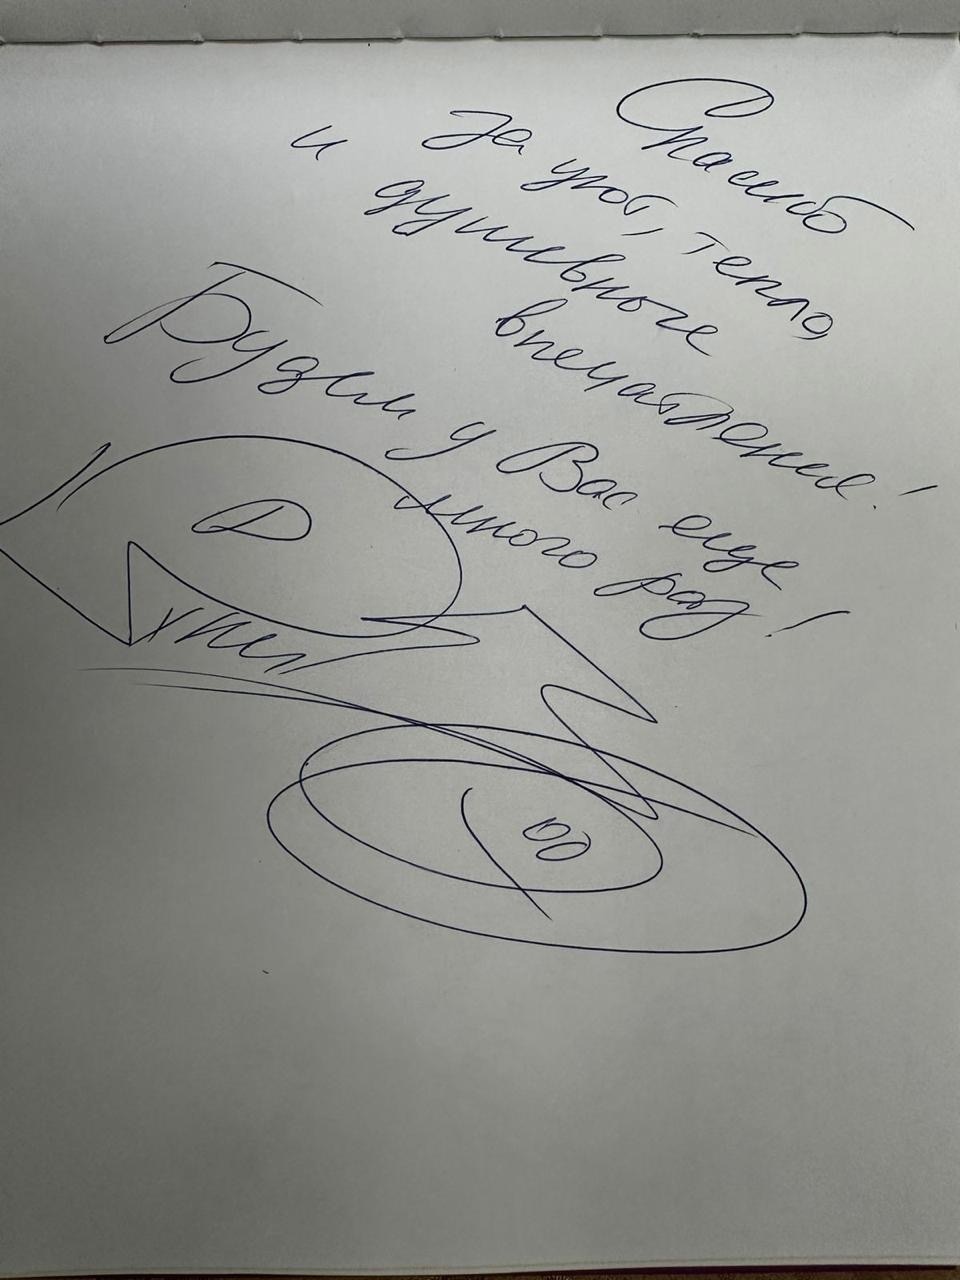 Спасиб
за уют, тепло,
и душевные
впечатления!
Будем у Вас еще
много раз!